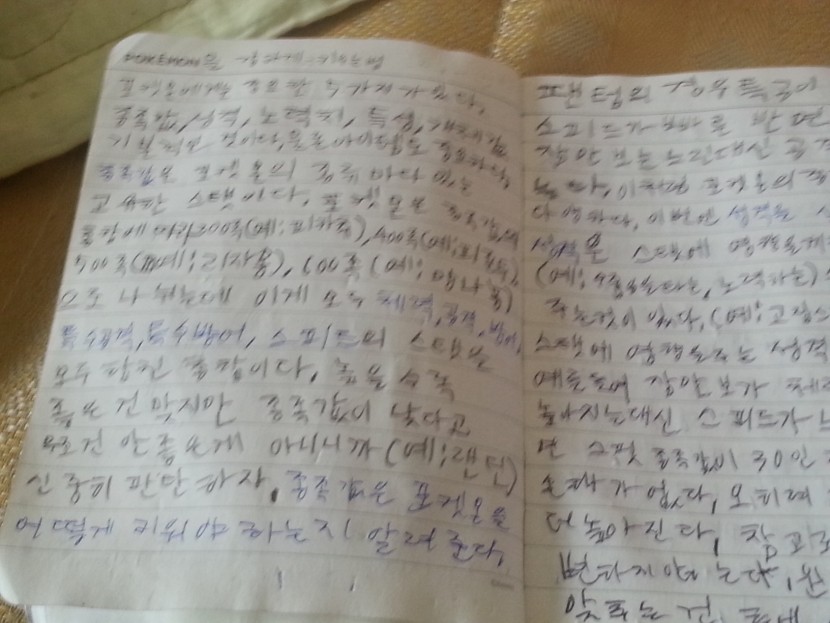 포켓몬에게는 중요한 수가지가 있다,
종족값, 성격, 노력치, 특성, 개체값
기본적인 것이다, 물론 아이템도 중요하다,
종족값은 포켓몬의 종류마다 있는
고유한 스탯이다, 포켓몬은 종족값의
총합에 따라 300족(예;피카츄), 400족(예;
500족(예;리자몽), 600족(예;망나뇽)
으로 나뉘는데 이게 모두 체력, 공격, 방어,
특수공격, 특수방어, 스피드의 스탯을
모두 합친 총합이다, 높을수록
좋은건 맞지만 종족값이 낮다고
무조건 안좋은게 아니니까(예;랜턴)
신중히 판단하자, 종족값은 포켓몬을
어떻게 키워야 하는지 알려준다,
팬텀의 경우 특공이
스피드가 빠른 반면
잠만보는 느린대신 공격
다양하다, 이번엔 성격을
성격은 스탯에 영향을
주는것이 있다, (예;고집
스탯에 영향을주는 성격
예를들어 잠만보가
높아지는대신 스피드가
면 스핏 종족값이 30인
손해가 없다, 오히려
더 높아진다, 참고로
변하지 않는다,
맞추는 건